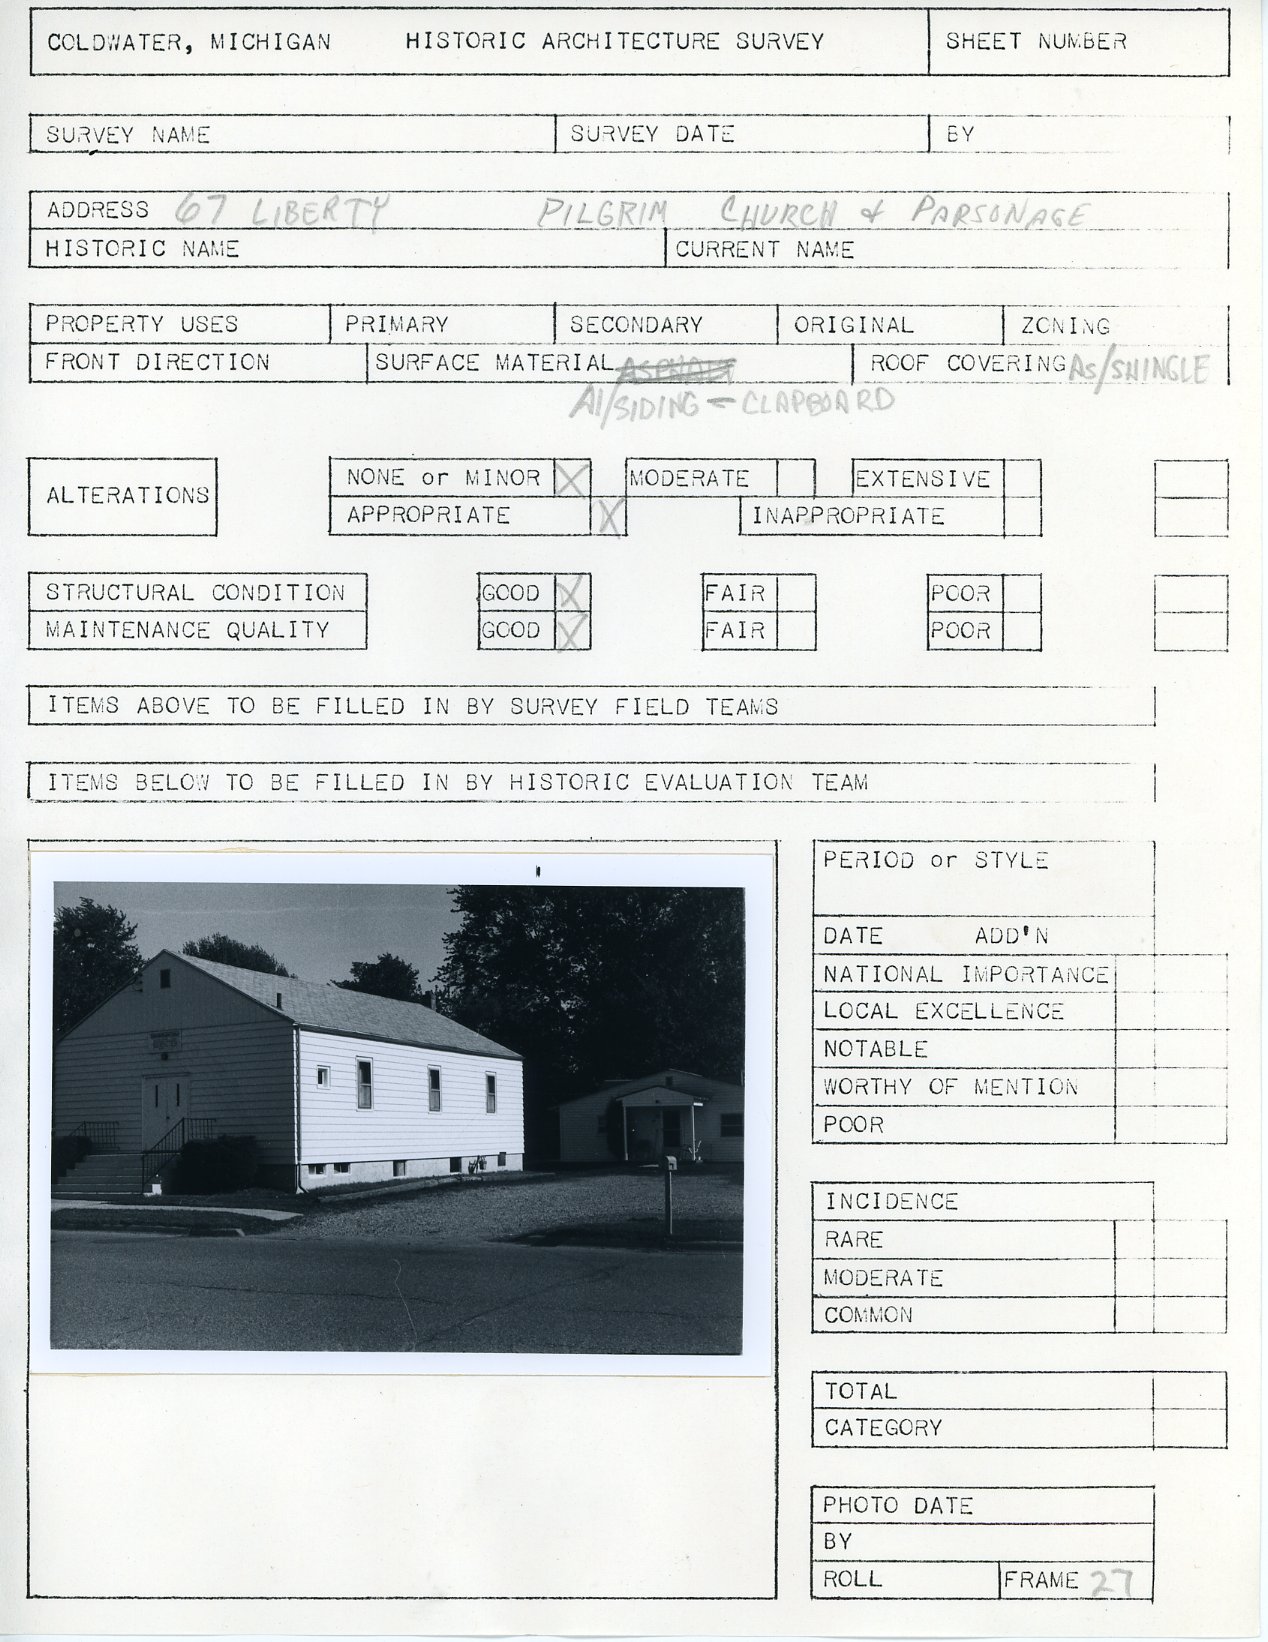 COLDWATER, MICHIGAN HISTORIC ARCHITECTURE SURVEY SHEET NUMBER
SURVEY NAME SURVEY DATE BY
ADDRESS 67 LIBERTY PILGRIM CHURCH & PARSONAGE
HISTORIC NAME CURRENT NAME
PROPERTY USES PRIMARY SECONDARY ORIGINAL ZONING
FRONT DIRECTION SURFACE MATERIAL ASPHALT ROOF COVERING As/SHINGLE
Al/SIDING - CLAPBOARD
ALTERATIONS NONE or MINOR X MODERATE EXTENSIVE
APPROPRIATE X INAPPROPRIATE
STRUCTURAL CONDITION GOOD X FAIR POOR
MAINTENANCE QUALITY GOOD X FAIR POOR
ITEMS ABOVE TO BE FILLED IN BY SURVEY FIELD TEAMS
ITEMS BELOW TO BE FILLED IN BY HISTORIC EVALUATION TEAM
PERIOD or STYLE
DATE ADD'N
NATIONAL IMPORTANCE
LOCAL EXCELLENCE
NOTABLE
WORTHY OF MENTION
POOR
INCIDENCE
RARE
MODERATE
COMMON
TOTAL
CATEGORY
PHOTO DATE
BY
ROLL FRAME 27